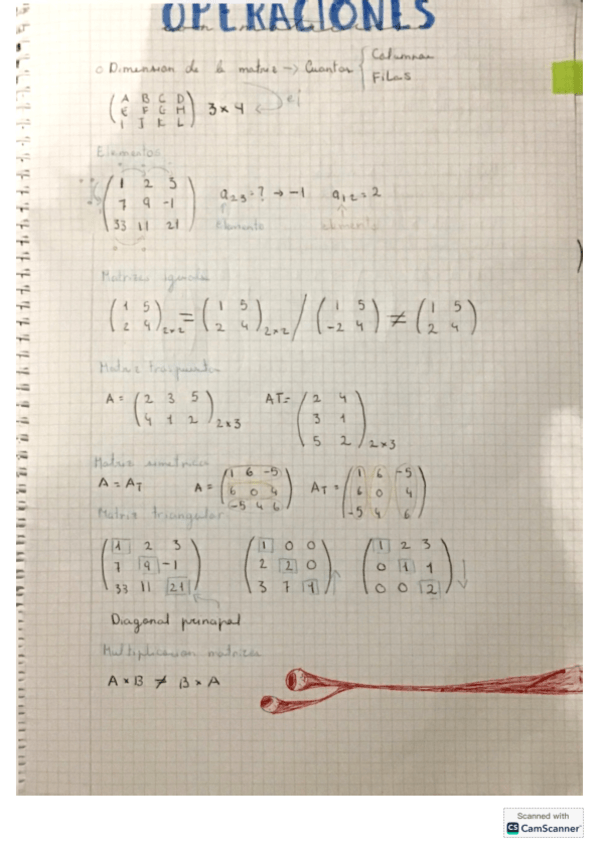 OPERACIONES
Dimension de la matriz → Cuantas { Columnas
Filas
( A B C D
E F G H
I J K L ) 3 x 4 ←
Elementos
( 1 2 3
7 9 -1
33 11 21 ) a23 = ? → -1 a12 = 2
elemento elemento
Matrices iguales
( 1 5
2 4 )2x2 = ( 1 5
2 4 )2x2 / ( 1 5
-2 4 ) ≠ ( 1 5
2 4 )
Matriz traspuesta
A = ( 2 3 5
4 1 2 )2x3 AT = ( 2 4
3 1
5 2 )2x3
Matriz simetrica
A = AT A = ( 1 6 -5
6 0 4
-5 4 6 ) AT = ( 1 6 -5
6 0 4
-5 4 6 )
Matriz triangular
( 1 2 3
7 9 -1
33 11 21 ) ( 1 0 0
2 2 0
3 7 4 ) ( 1 2 3
0 1 1
0 0 2 )
Diagonal principal
Multiplicacion matrices
A x B ≠ B x A
Scanned with
CS CamScanner